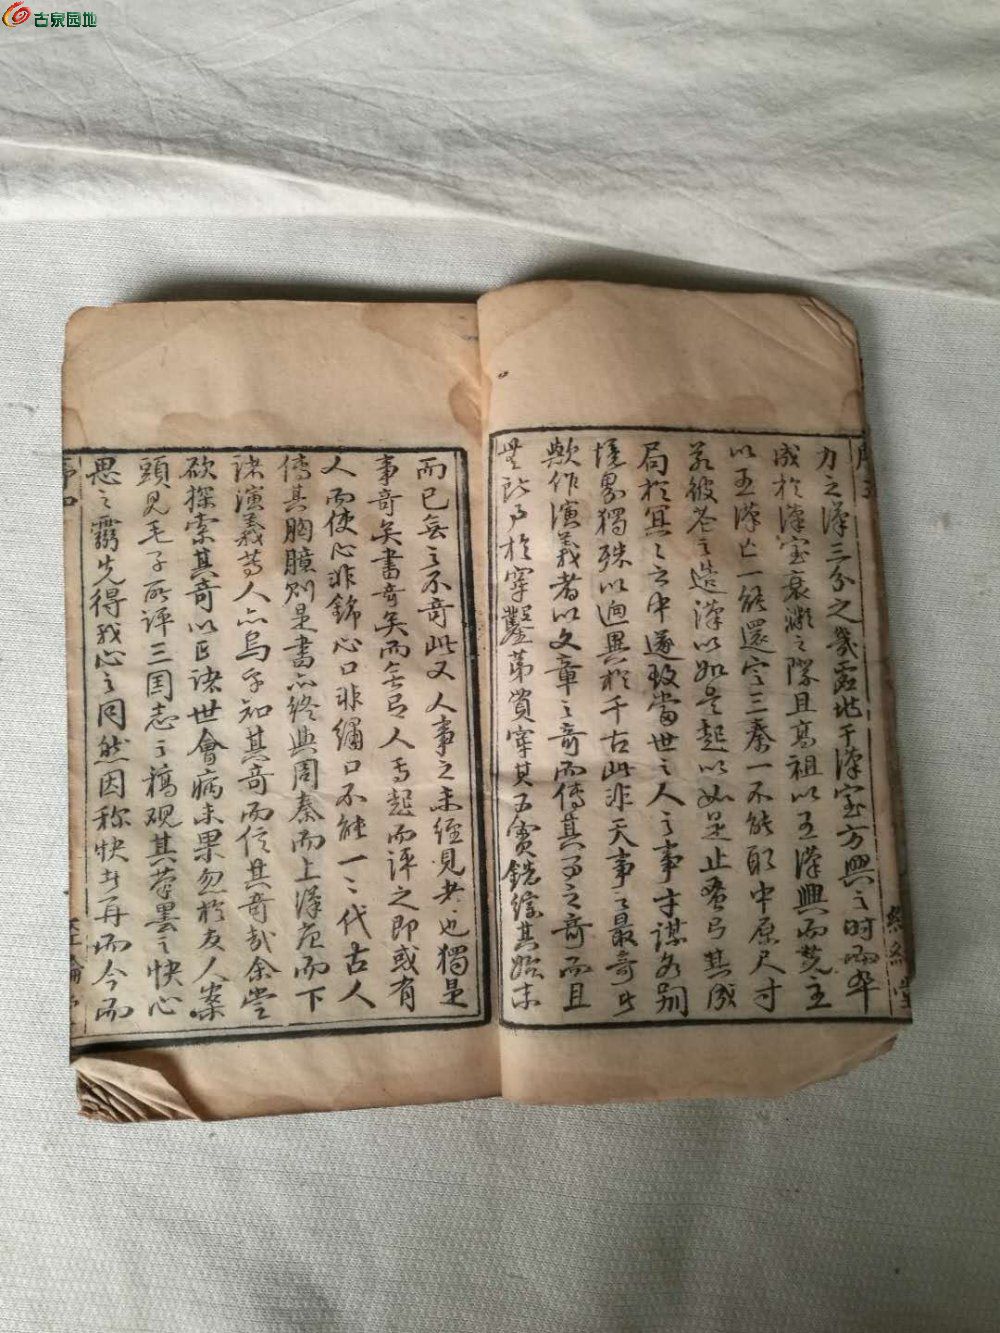 古泉园地
力之漢三分之幾露地于漢室方興之時而卒
成於漢室衰微之際且髙祖以王漢興而先主
以王漢亡一能還定三秦一不能取中原尺寸
若彼蒼之造漢以如是起以如是止蚤有其成
局於冥冥之中遂致當世之人之事才謀各別
境界獨殊以迥異於千古此非天事之最奇者
歟作演義者以文章之奇而傳其事之奇而且
無所事於穿鑿第貫穿其事實錯綜其始末
而已無之不奇此又人事之未經見者也獨是
事奇矣書奇矣而無有人焉起而評之即或有
人而使心非錦心口非繡口不能一一代古人
傳其胸臆則是書亦終與周秦而上漢唐而下
諸演義等人亦烏乎知其奇而信其奇哉余嘗
欲探索其奇以正諸世會病未果忽於友人案
頭見毛子所評三國志之稿觀其筆墨之快心
思之靈先得我心之同然因称快者再而今而
經綸堂